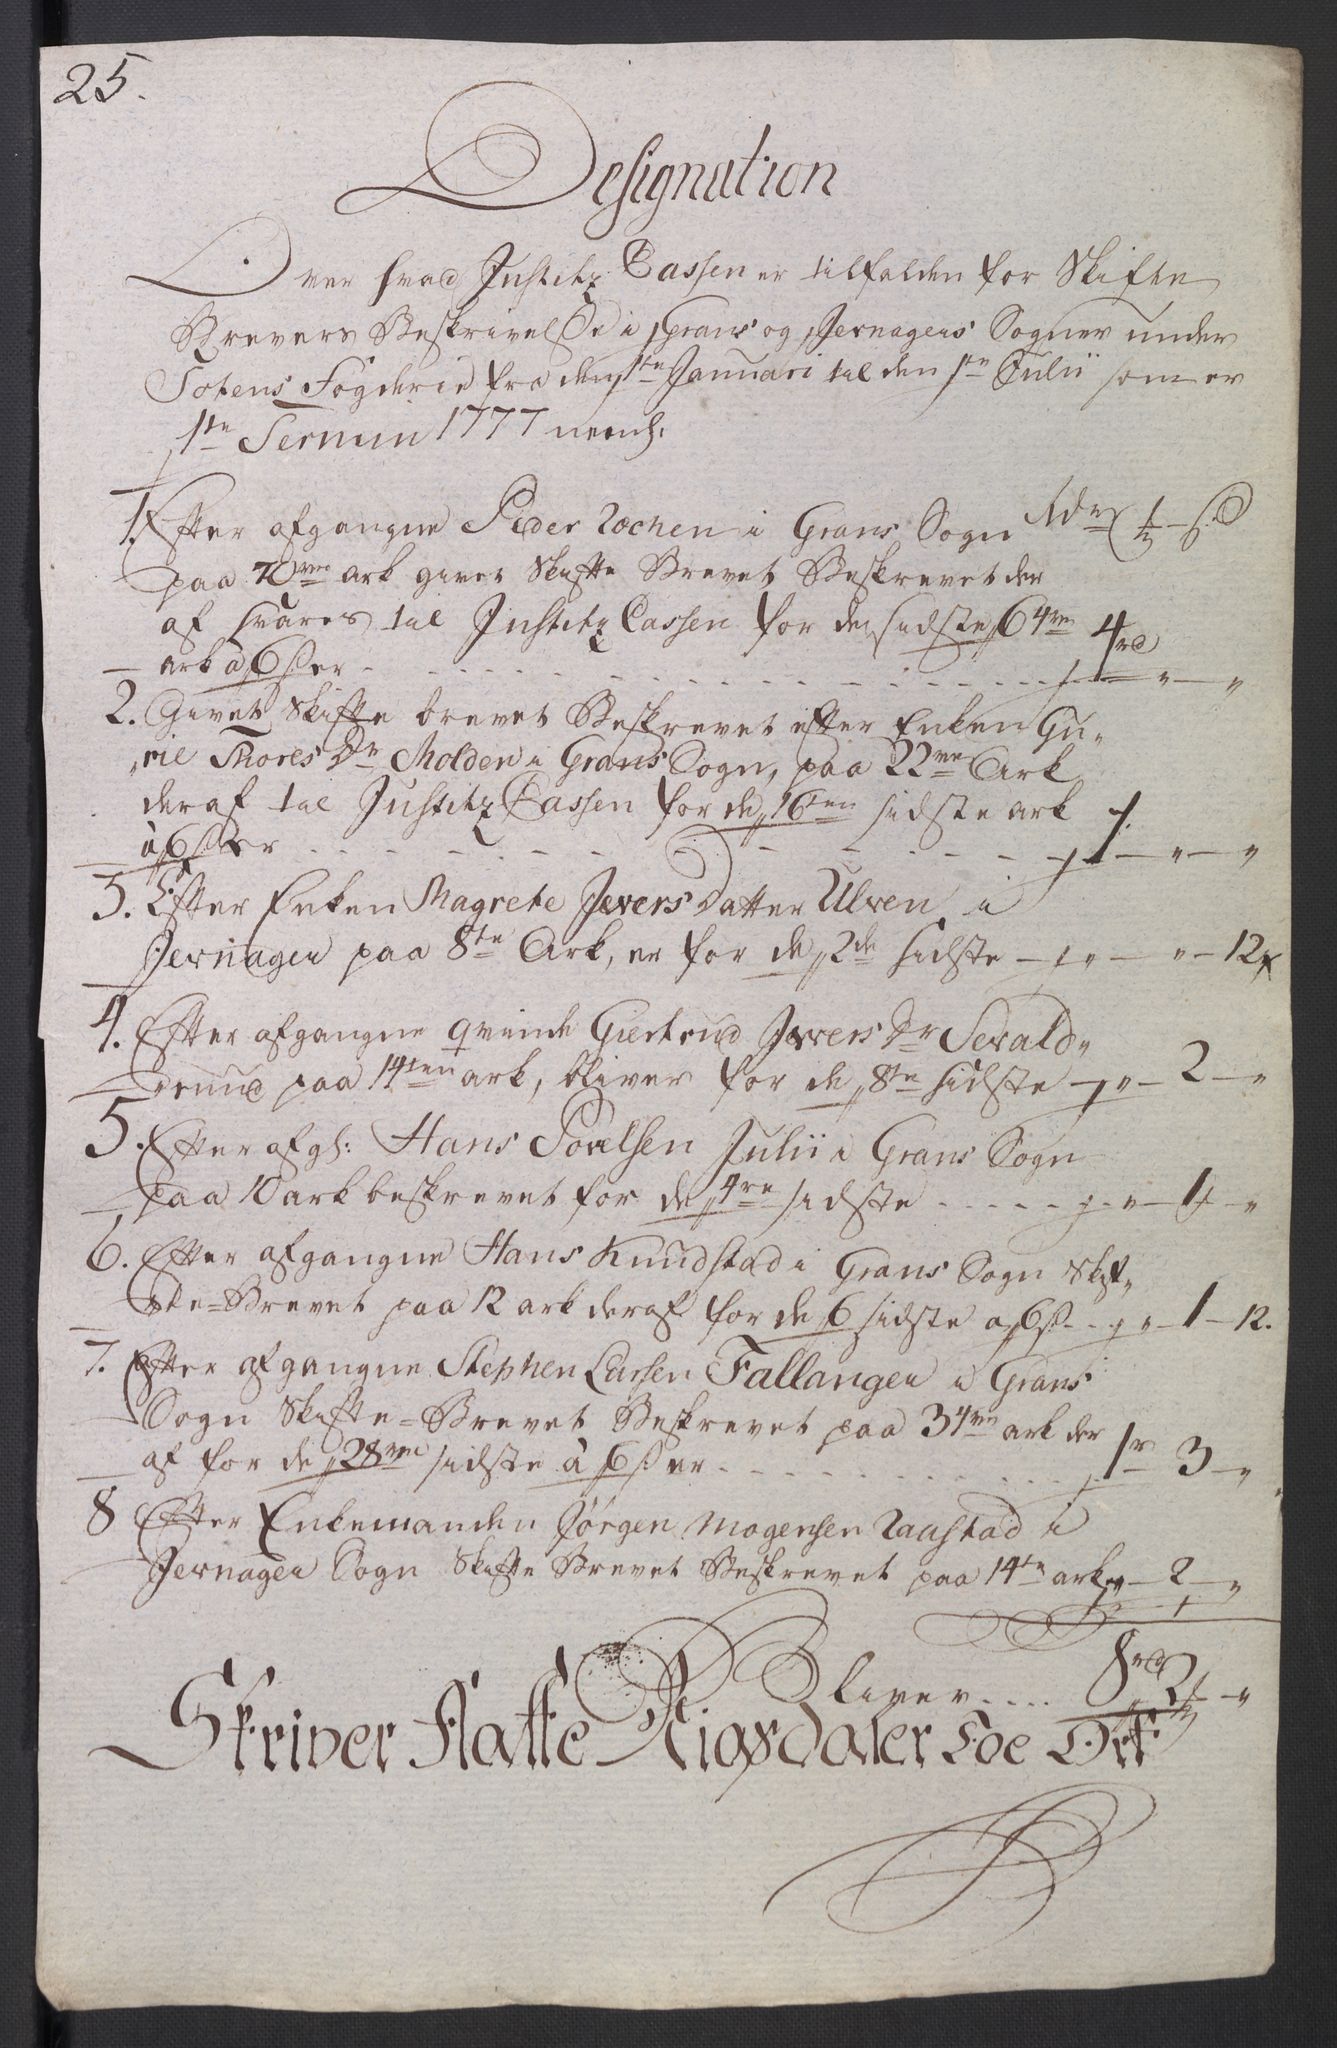 25.
Designation
Over hvad Justitz Cassen er tilfalden for Skifte
Brevers Beskrivelse i Grans og Jevnagers Sogner under
Totens Fogderie fra den 1ste Januari til den 1ste Julii som er
1ste Termin 1777 neml:
1. Efter afgangne Peder Lochen i Grans Sogn Rdr ¦ ß
paa 70ve ark givet Skifte Brevet Beskrevet der
af svares til Justitz Cassen for de sidste 64ve
ark a 6 ß er - - - 4 rd „ — „
2. Givet Skifte brevet Beskrevet efter Enken Gu„
„rie Thores Dr Molden i Grans Sogn, paa 22ve Ark
deraf til Justitz Cassen for de 16ten sidste ark
à 6 ß er - - - 1. — „ — „
3. Efter Enken Magrete Jvers datter Ulven i
Jevnager paa 8te Ark, er for de 2de sidste — „ — „ — 12
4. Efter afgangne qvinde Giertrud Jvers Dr
paa 14ten ark, bliver for de 8te sidste — „ — 2 — „
5. Efter afgl: Hans Povelsen Julii i Grans Sogn
paa 10 ark beskrevet for de 4re sidste . . . . . „ — 1 — „
6. Efter afgangne Hans Knudstad i Grans Sogn Skif„
te=Brevet paa 12 ark deraf for de 6 sidste a 6 ß . . „ — 1 — 12.
7. Efter afgangne Stephen Larsen Fallangen i Grans
Sogn Skifte=Brevet Beskrevet paa 34ve ark der
af for de 28ve sidste à 6 ß er - - - 1 r 3 — „
8 Efter Enkemanden Jörgen Mogensen Raastad i
Jevnager Sogn Skifte Brevet Beskrevet paa 14te ark „ — 2 — „
Bliver . . . . 8 rd 2 — „
Skriver Aatte Rigsdaler Toe Ort